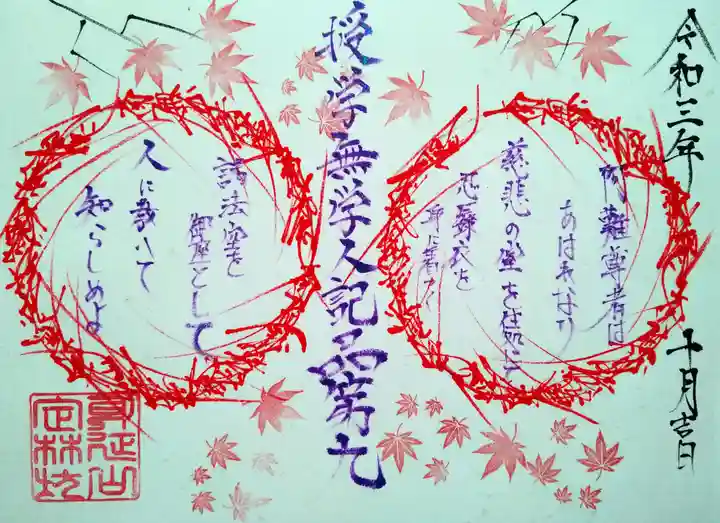 令和三年
十月吉日
阿難尊者は
あはれなり
慈悲の室を住処に
忍辱衣を
身に着て
授学無学人記品第九
諸法空を
御座として
人に教へて
知らしめよ
身延山
定林坊